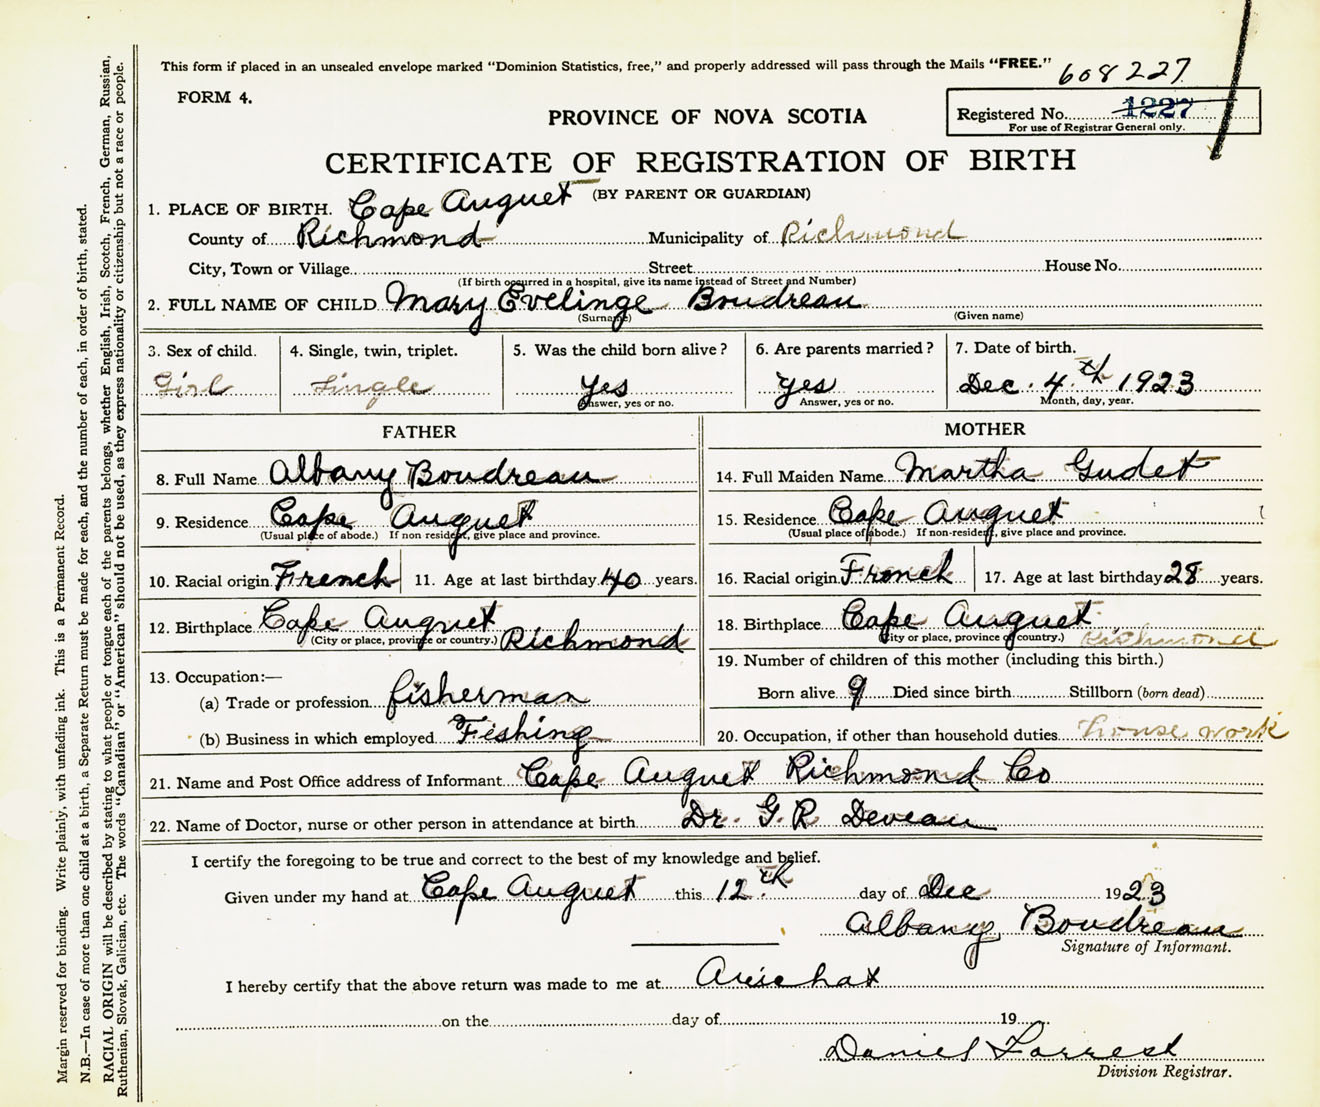 This form if placed in an unsealed envelope marked "Dominion Statistics, free," and properly addressed will pass through the Mails "FREE."
608227
FORM 4.
PROVINCE OF NOVA SCOTIA
Registered No. 1227
For use of Registrar General only.
CERTIFICATE OF REGISTRATION OF BIRTH
(BY PARENT OR GUARDIAN)
1. PLACE OF BIRTH. Cape Auguet
County of Richmond Municipality of Richmond
City, Town or Village Street House No.
(If birth occurred in a hospital, give its name instead of Street and Number)
2. FULL NAME OF CHILD Mary Evelinge Boudreau
(Surname) (Given name)
3. Sex of child. 4. Single, twin, triplet. 5. Was the child born alive? 6. Are parents married? 7. Date of birth.
Girl Single Yes Yes Dec. 4th 1923
Answer, yes or no. Answer, yes or no. Month, day, year.
FATHER
8. Full Name Albany Boudreau
9. Residence Cape Auguet
(Usual place of abode.) If non resident, give place and province.
10. Racial origin French 11. Age at last birthday 40 years.
12. Birthplace Cape Auguet
(City or place, province or country.) Richmond
13. Occupation:—
(a) Trade or profession fisherman
(b) Business in which employed Fishing
MOTHER
14. Full Maiden Name Martha Gudet
15. Residence Cape Auguet
(Usual place of abode.) If non-resident, give place and province.
16. Racial origin French 17. Age at last birthday 28 years.
18. Birthplace Cape Auguet
(City or place, province or country.) Richmond
19. Number of children of this mother (including this birth.)
Born alive 9 Died since birth Stillborn (born dead)
20. Occupation, if other than household duties house work
21. Name and Post Office address of Informant Cape Auguet Richmond Co
22. Name of Doctor, nurse or other person in attendance at birth Dr. G. R Deveau
I certify the foregoing to be true and correct to the best of my knowledge and belief.
Given under my hand at Cape Auguet this 12th day of Dec 1923
Albany Boudreau
Signature of Informant.
I hereby certify that the above return was made to me at Arichat
on the day of 19
Daniel Forrest
Division Registrar.
Margin reserved for binding. Write plainly, with unfading ink. This is a Permanent Record.
N.B.—In case of more than one child at a birth, a Separate Return must be made for each, and the number of each, in order of birth, stated.
RACIAL ORIGIN will be described by stating to what people or tongue each of the parents belongs, whether English, Irish, Scotch, French, German, Russian,
Ruthenian, Slovak, Galician, etc. The words "Canadian" or "American" should not be used, as they express nationality or citizenship but not a race or people.